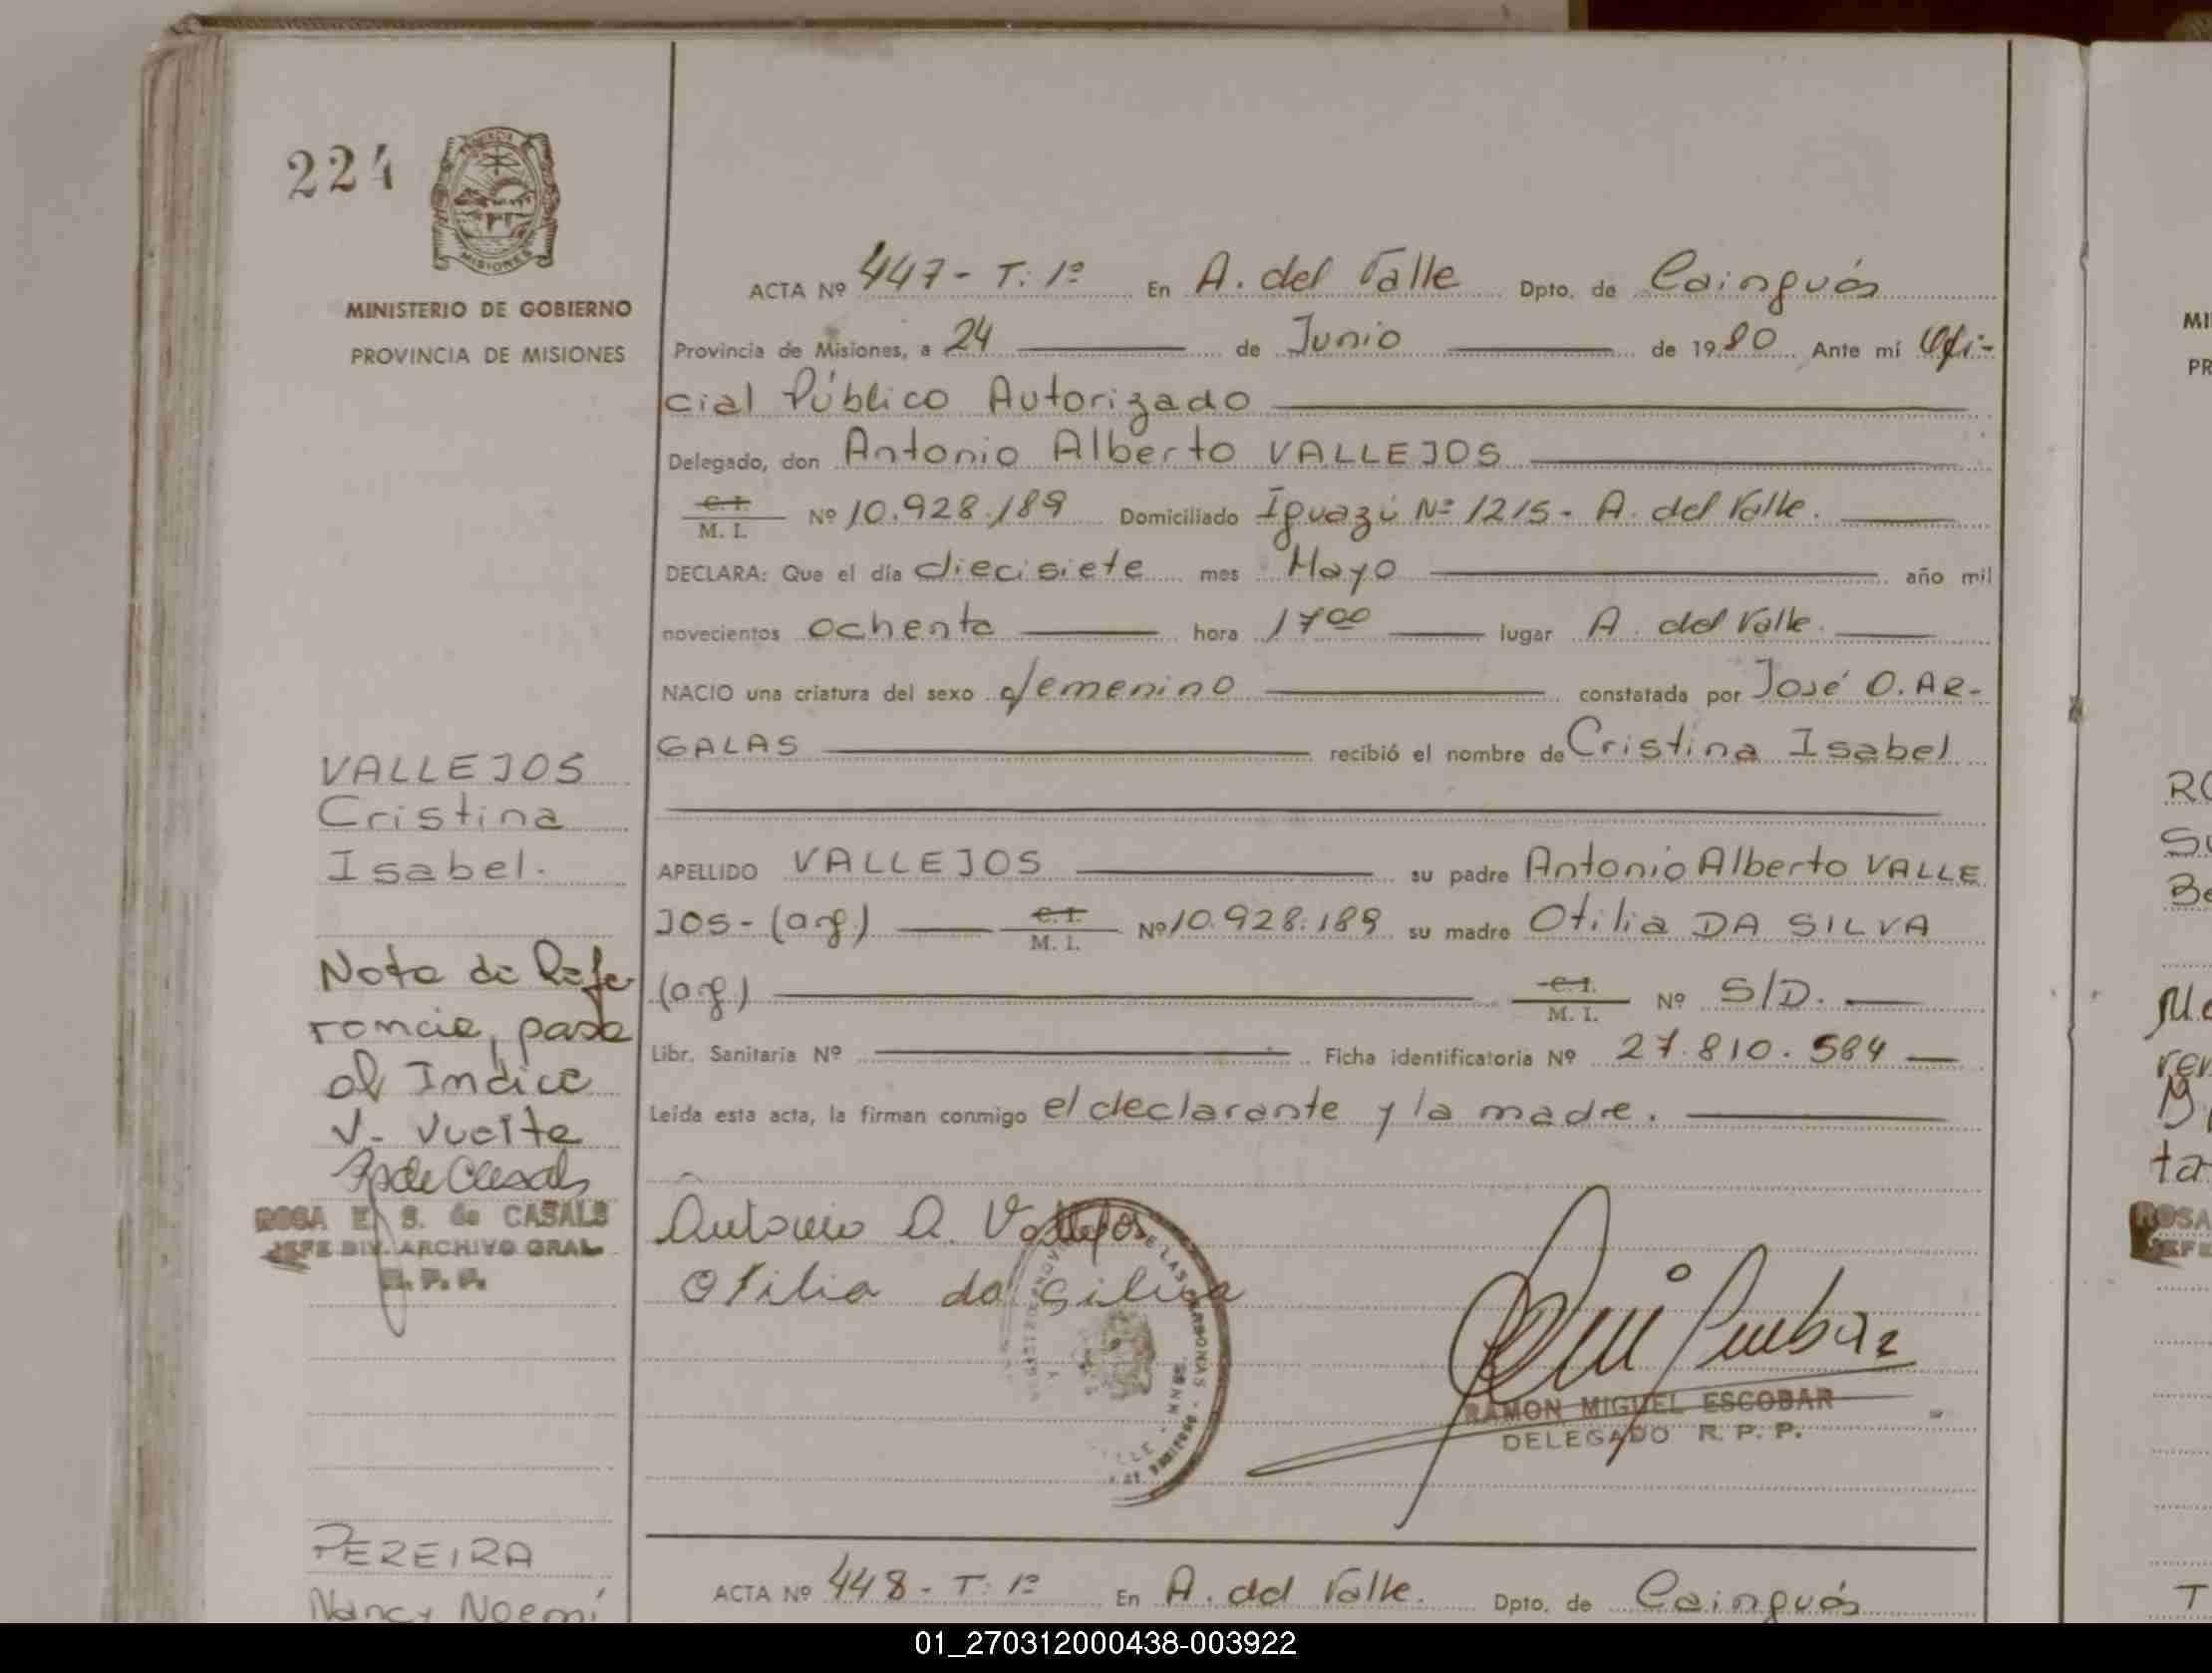 224
MISIONES
MINISTERIO DE GOBIERNO
PROVINCIA DE MISIONES
ACTA Nº 447- T: 1º En A. del Valle Dpto. de Cainguás
Provincia de Misiones, a 24 de Junio de 1980 Ante mí Ofi-
cial Público Autorizado
Delegado, don Antonio Alberto VALLEJOS
C. I.
M. I. Nº 10.928.189 Domiciliado Iguazú Nº 1215- A. del Valle.
DECLARA: Que el día diecisiete mes Mayo año mil
novecientos ochenta hora 17 00 lugar A. del Valle.
NACIO una criatura del sexo femenino constatada por José O. AR-
GALAS recibió el nombre de Cristina Isabel
APELLIDO VALLEJOS su padre Antonio Alberto VALLE
JOS- (arg.) C. I. M. I. Nº 10.928.189 su madre Otilia DA SILVA
(arg.) C. I. M. I. Nº S/D.
Libr. Sanitaria Nº Ficha identificatoria Nº 27.810.584
Leida esta acta, la firman conmigo el declarante y la madre.
Antonio A. Vallejos
Otilia da Silva
RAMON MIGUEL ESCOBAR
DELEGADO R. P. P.
VALLEJOS
Cristina
Isabel.
Nota de Refe
rencia, pase
al Indice
V. Vuelta
ROSA E. S. de CASALS
JEFE DIV. ARCHIVO GRAL.
R. P. P.
PEREIRA
Nancy Noemí
ACTA Nº 448- T: 1º En A. del Valle. Dpto. de Cainguás
MI
PR
RO
SU
Be
ta
ROSA
JEFE
T
01_270312000438-003922